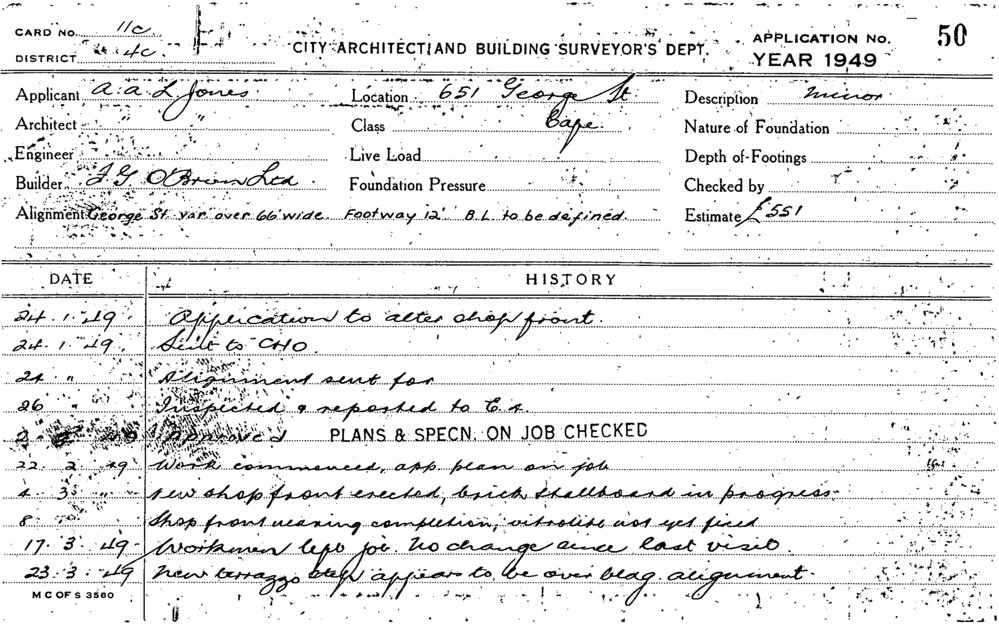 CARD NO. 11c
DISTRICT 4c
CITY ARCHITECT AND BUILDING SURVEYOR'S DEPT.
APPLICATION NO. 50
YEAR 1949
Applicant A. A. L Jones Location 651 George St. Description Minor
Architect Class Cafe. Nature of Foundation
Engineer Live Load Depth of Footings
Builder J G O'Brien Ltd. Foundation Pressure Checked by
Alignment George St. var. over 66' wide. Footway 12' B.L. to be defined Estimate £551
DATE HISTORY
24. 1. 49 Application to alter shop front.
24. 1. 49 Sent to CHO.
24 " Alignment sent for
26 Inspected & reported to C.A.
2 2 49 Approved PLANS & SPECN. ON JOB CHECKED
22. 2. 49 Work commenced, app. plan on job
4 3 " New shop front erected, brick stallboard in progress
8 Shop front nearing completion, vitrolite not yet fixed
17. 3. 49 Workmen left job. No change since last visit.
23. 3. 49 New terrazzo step appears to be over bldg. alignment.
M C OF S 3580